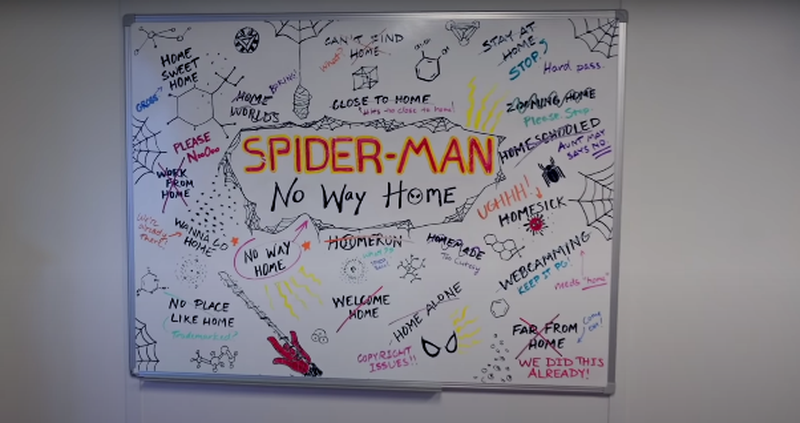 HOME
SWEET
HOME
GROSS!
CAN'T FIND
HOME
What?
STAY AT
HOME
STOP!
Hard pass.
BORING!
HOME
WORLDS
CLOSE TO HOME
ZOOMING HOME
Please Stop.
PLEASE
NoOoo
WORK
FROM
HOME
SPIDER-MAN
No Way Home
HOMESCHOOLED
AUNT MAY
SAYS NO
UGHHH!
HOMESICK
We're
already
there!!
WANNA GO
HOME
NO WAY
HOME
HOMERUN
HOMEMADE
Too Cutesy
WEBCAMMING
KEEP IT PG!
needs "home"
NO PLACE
LIKE HOME
Trademarked?
WELCOME
HOME
HOME ALONE
COPYRIGHT
ISSUES!!
FAR FROM
HOME
Come
on!
WE DID THIS
ALREADY!